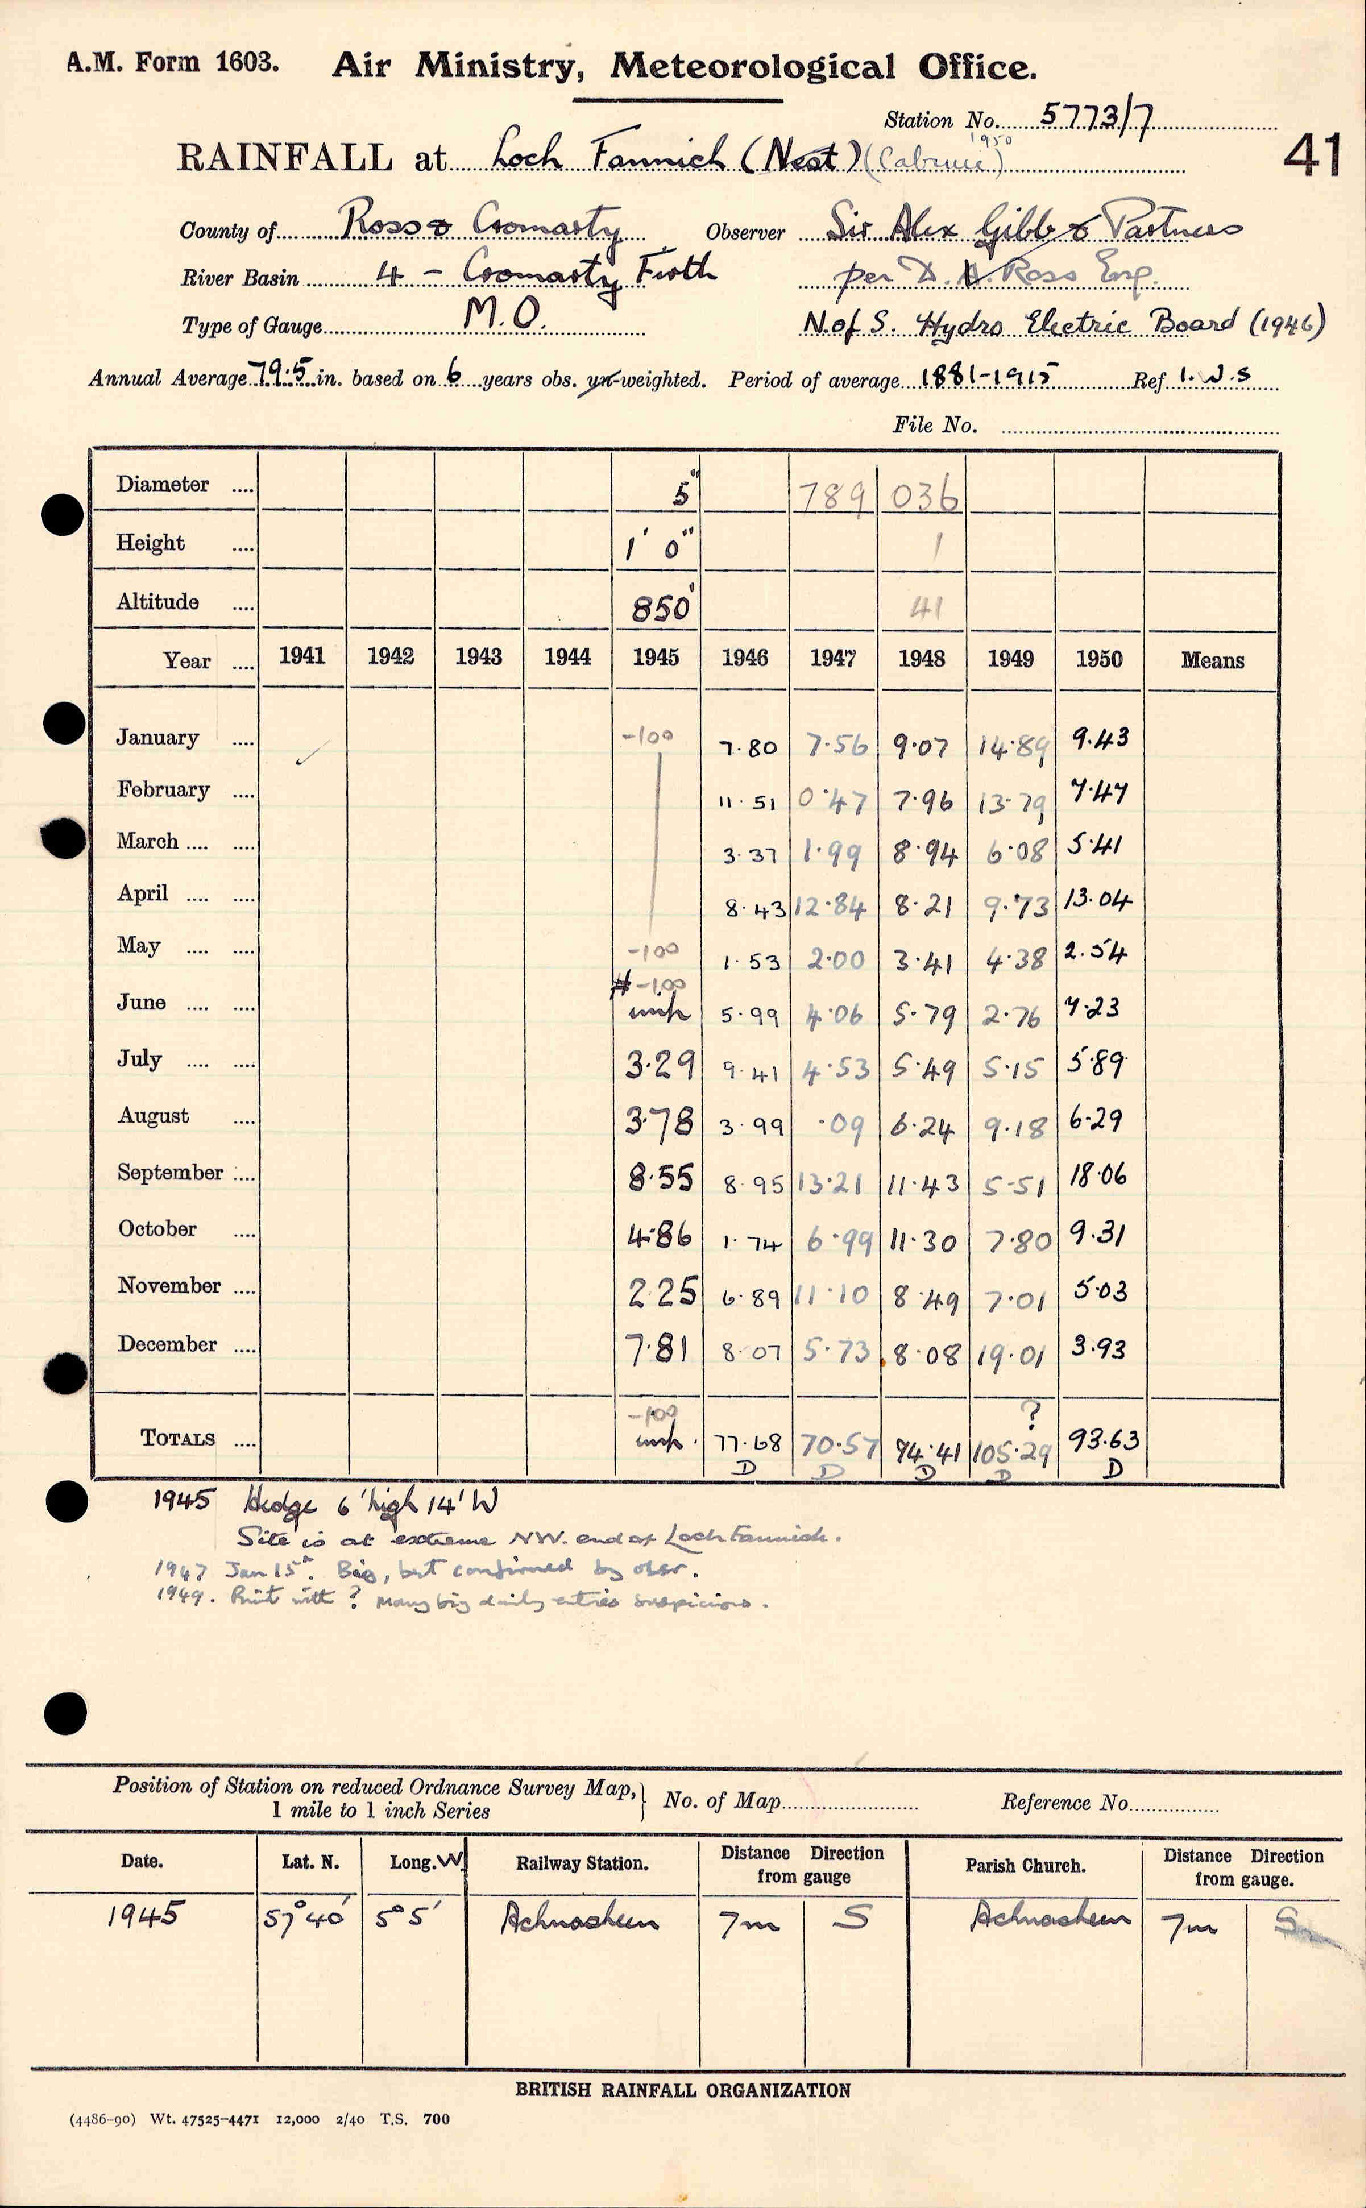 A.M. Form 1603. Air Ministry, Meteorological Office.
Station No. 5773/7
1950
RAINFALL at Loch Fannich (Nest) (Cabuie) 41
County of Ross & Cromarty Observer Sir Alex Gibb & Partners
River Basin 4 - Cromarty Firth per D. A. Ross Esq.
Type of Gauge M.O. N. of S. Hydro Electric Board (1946)
Annual Average 79.5 in. based on 6 years obs. un-weighted. Period of average 1881-1915 Ref I.W.S
File No.
Diameter .... 5" 789 036
Height .... 1' 0" 1
Altitude .... 850' 41
Year .... 1941 1942 1943 1944 1945 1946 1947 1948 1949 1950 Means
January .... -100 7.80 7.56 9.07 14.89 9.43
February .... 11.51 0.47 7.96 13.79 7.47
March .... .... 3.37 1.99 8.94 6.08 5.41
April .... .... 8.43 12.84 8.21 9.73 13.04
May .... .... -100 1.53 2.00 3.41 4.38 2.54
# -1.00
June .... .... imp 5.99 4.06 5.79 2.76 7.23
July .... .... 3.29 9.41 4.53 5.49 5.15 5.89
August .... 3.78 3.99 .09 6.24 9.18 6.29
September .... 8.55 8.95 13.21 11.43 5.51 18.06
October .... 4.86 1.74 6.99 11.30 7.80 9.31
November .... 2.25 6.89 11.10 8.49 7.01 5.03
December .... 7.81 8.07 5.73 8.08 19.01 3.93
-100 ?
TOTALS .... imp. 77.68 70.57 94.41 105.29 93.63
D D D D D
1945 Hedge 6' high 14' W
Site is at extreme NW. end of Loch Fannich.
1947 Jan 15th. Big, but confirmed by obsr.
1949. Print with ? Many big daily entries suspicious.
Position of Station on reduced Ordnance Survey Map, 1 mile to 1 inch Series } No. of Map Reference No.
Date. Lat. N. Long. W Railway Station. Distance Direction from gauge Parish Church. Distance Direction from gauge.
1945 57° 40' 5° 5' Achnasheen 7m S Achnasheen 7m S
BRITISH RAINFALL ORGANIZATION
(4486-90) Wt. 47525-4471 12,000 2/40 T.S. 700